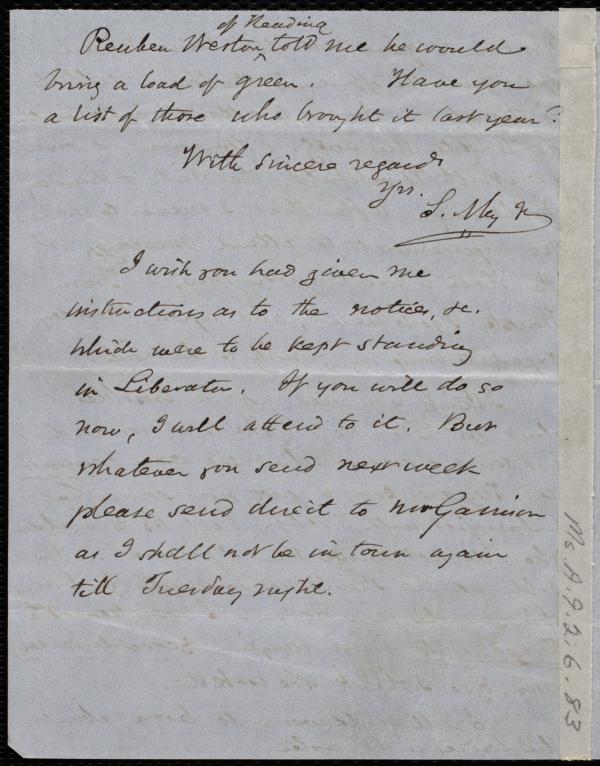 of Reading
Reuben Weston ^ told me he would
bring a load of green. Have you
a list of those who brought it last year?
With sincere regards
Yrs.
S. May Jr
I wish you had given me
instructions as to the notices, &c.
which were to be kept standing
in Liberator. If you will do so
now, I will attend to it. But
whatever you send next week
please send direct to Mr Garrison
as I shall not be in town again
till Tuesday night.
Ms. A.9.2.6.83